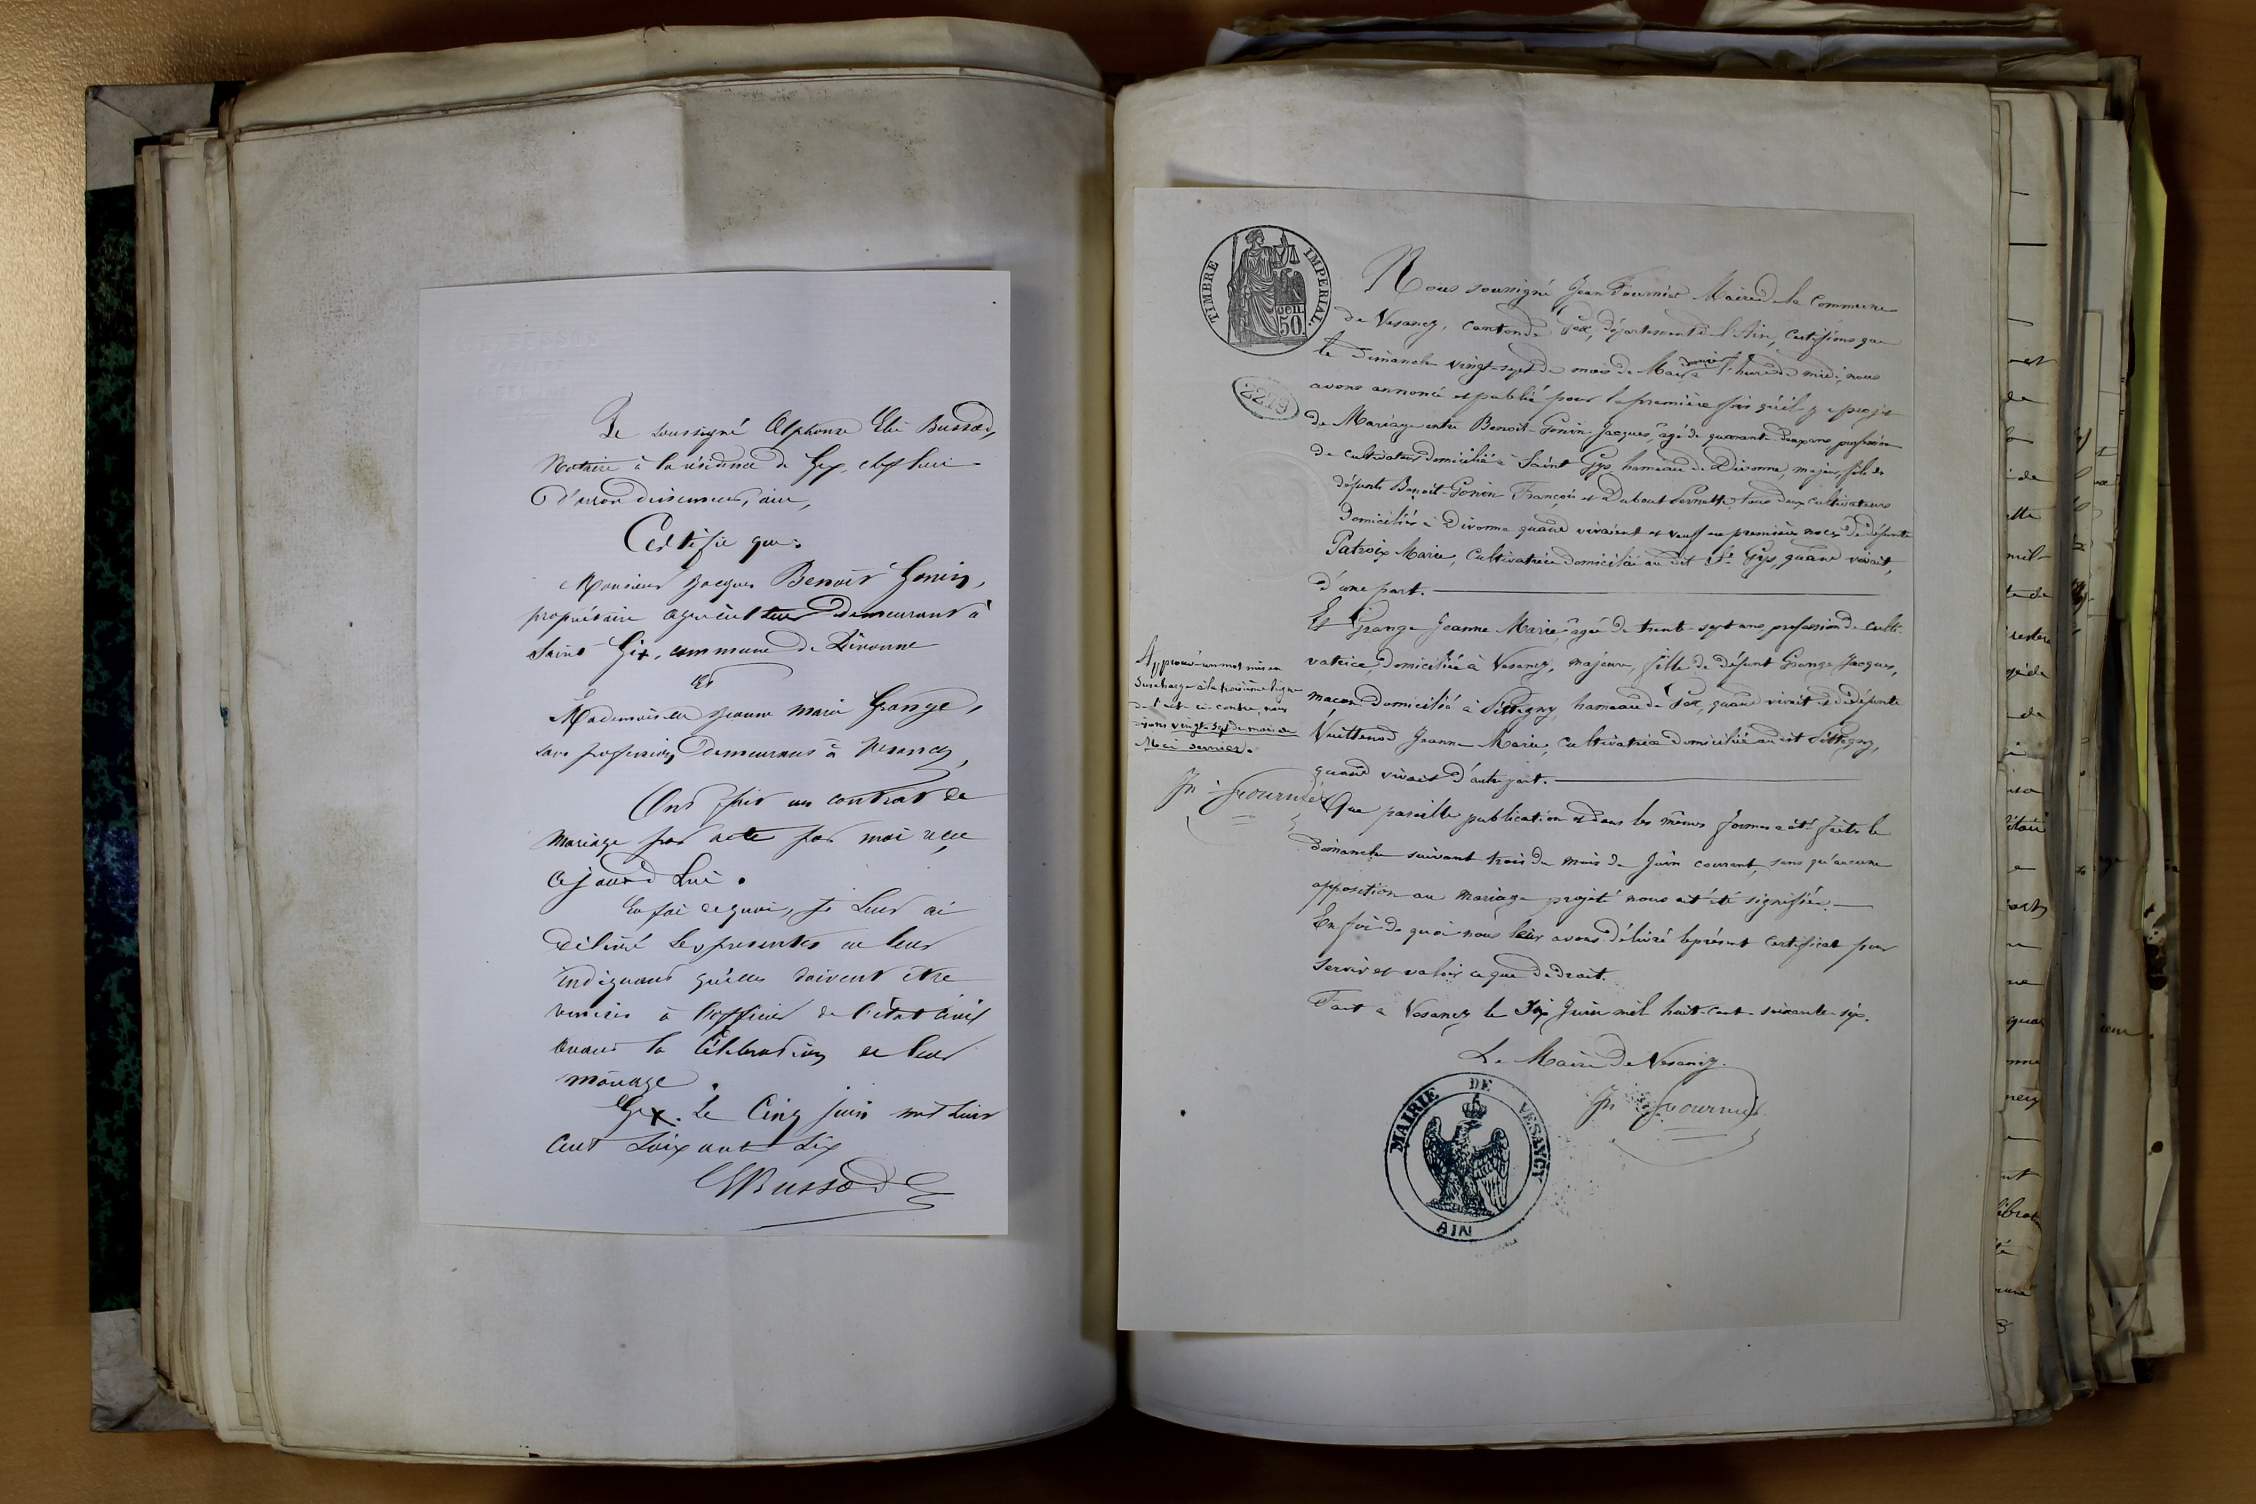 Je soussigné Alphonse Elie Bussod,
Notaire à la résidence de Gex, chef lieu
d'arrondissement, ain,
Certifie que:
Monsieur Jacques Benoit Gonin,
propriétaire agriculteur demeurant à
Saint Gix, commune de Divonne
Et
Mademoiselle Jeanne Marie Grange,
sans profession, demeurant à Vesancy,
Ont fait un contrat de
mariage par acte par moi reçu
cejourd'hui.
En foi de quoi, je leur ai
délivré les présentes en leur
indiquant qu'elles doivent être
remises à l'officier de l'état civil
avant la célébration de leur
mariage.
Gex. Le Cinq juin mil huit
cent soixante six
Bussod
TIMBRE IMPERIAL.
50
2279
Nous soussigné Jean Fournier Maire de la Commune
de Vesancy, canton de Gex, département de l'Ain, certifions que
le dimanche vingt-sept du mois de Mai dernier à l'heure de midi, nous
avons annoncé et publié pour la première fois qu'il y a projet
de Mariage entre Benoit-Gonin Jacques, âgé de quarante-deux ans profession
de cultivateur domicilié à Saint Gys hameau de Divonne, majeur, fils de
défunts Benoit-Gonin François et Dubout Pernette, tous deux cultivateurs
domiciliés à Divonne quand vivaient et veuf en premières noces de défunte
Patroix Marie, cultivatrice domiciliée au dit St Gys, quand vivait,
d'une part.
Et Grange Jeanne Marie, âgée de trente-sept ans, profession de culti-
vatrice, domiciliée à Vesancy, majeure, fille de défunt Grange Jacques,
maçon domicilié à Pitegny, hameau de Gex, quand vivait et de défunte
Vuittenod Jeanne-Marie, cultivatrice domiciliée au dit Pitegny,
quand vivait d'autre part.
Approuvé un mot mis en
surcharge à la troisième ligne
de l'acte ci-contre, nous
disons vingt-sept du mois de
Mai dernier.
Jn Fournier
Que pareille publication et dans les mêmes formes a été faite le
dimanche suivant trois du mois de Juin courant, sans qu'aucune
opposition au mariage projeté nous ait été signifiée.
En foi de quoi nous leur avons délivré le présent certificat pour
servir et valoir ce que de droit.
Fait à Vesancy le six Juin mil huit-cent-soixante-six.
Le Maire de Vesancy.
Jn Fournier
MAIRIE DE VESANCY
AIN